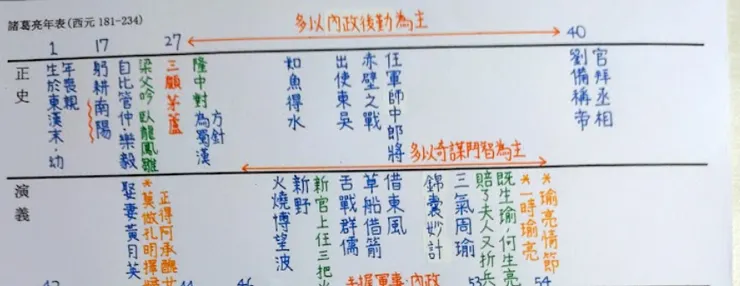 諸葛亮年表(西元 181-234)
多以內政後勤為主
1
17
27
40
正史
生於東漢末,幼
年喪親
躬耕南陽
自比管仲.樂毅
梁父吟 臥龍鳳雛
三顧茅蘆
隆中對為蜀漢
方針
如魚得水
出使東吳
赤壁之戰
任軍師中郎將
劉備稱帝
官拜丞相
多以奇謀鬥智為主
演義
娶妻黃月英
*莫做孔明擇婦
正得阿承醜女
火燒博望波
新野
新官上任三把火
舌戰群儒
草船借箭
借東風
錦囊妙計
三氣周瑜
賠了夫人又折兵
既生瑜,何生亮
*一時瑜亮
*瑜亮情節
44
46
掌握軍事.內政
53
54